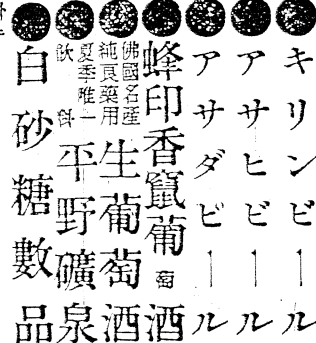 キリンビール
アサヒビール
アサダビール
蜂印香竄葡萄酒
佛國名產
純良藥用
生葡萄酒
夏季唯一
飲料
平野礦泉
白砂糖數品